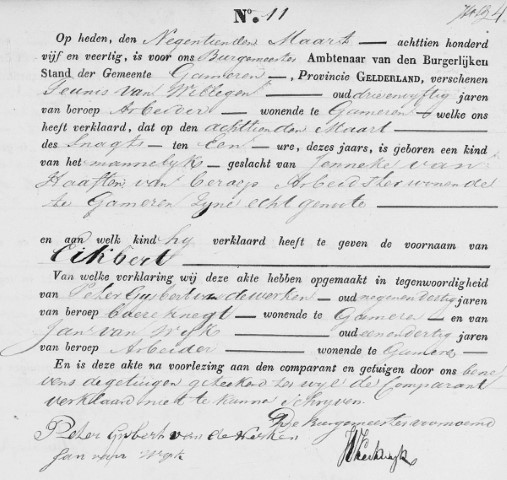 No. 11
Op heden, den Negentienden Maart achttien honderd
vijf en veertig, is voor ons Burgemeester Ambtenaar van den Burgerlijken
Stand der Gemeente Gameren, Provincie GELDERLAND, verschenen
Teunis van Wellegen oud drieenvyftig jaren
van beroep Arbeider wonende te Gameren welke ons
heeft verklaard, dat op den achttienden Maart
des Snagts ten Een ure, dezes jaars, is geboren een kind
van het mannelyk geslacht van Jenneke van
Haaften van beroep Arbeidster wonende
te Gameren Zyne echtgenoote
en aan welk kind hy verklaard heeft te geven de voornaam van
Eikbert
Van welke verklaring wij deze akte hebben opgemaakt in tegenwoordigheid
van Peter Gysbert van de Werken oud negenendertig jaren
van beroep wonende te Gameren en van
Jan van Wyk oud eenendertig jaren
van beroep Arbeider wonende te Gameren
En is deze akte na voorlezing aan den comparant en getuigen door ons bene
vens de getuigen geteekend terwyl de Comparant
verklaard niet te kunnen schryven
De Burgemeester voornoemd
Peter Gybert van de Werken
Jan van Wyk